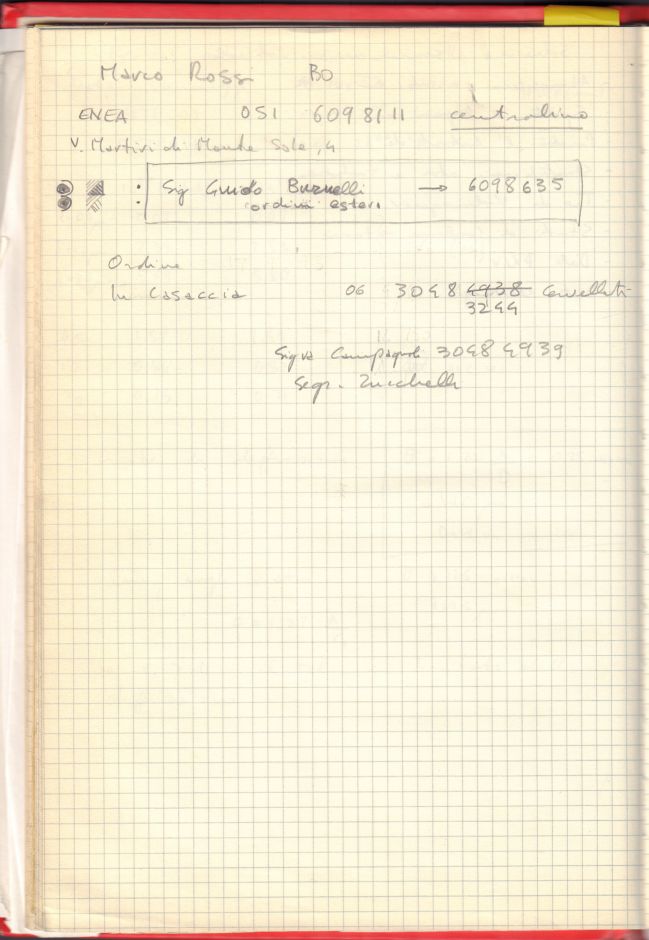 Marco Rossi BO
ENEA 051 6098111 centralino
V. Martiri di Monte Sole, 4
: Sig Guido Burnelli → 6098635
ordini esteri
Ordine
In Casaccia 06 3048 4938
3244
Sig.ra Campagnoli 3048 4939
Segr. Zucchelli